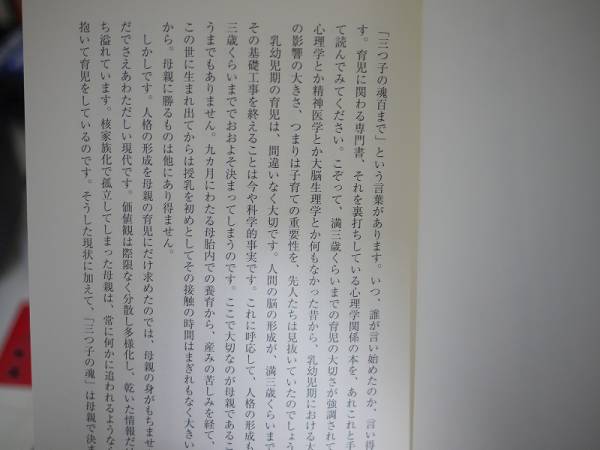 「三つ子の魂百まで」という言葉があります。いつ、誰が言い始めたのか、言い得
す。育児に関わる専門書、それを裏打ちしている心理学関係の本を、あれこれと手
て読んでみてください。こぞって、満三歳くらいまでの育児の大切さが強調されて
心理学とか精神医学とか大脳生理学とか何もなかった昔から、乳幼児期における大
の影響の大きさ、つまりは子育ての重要性を、先人たちは見抜いていたのでしょう
乳幼児期の育児は、間違いなく大切です。人間の脳の形成が、満三歳くらいまで
その基礎工事を終えることは今や科学的事実です。これに呼応して、人格の形成も
三歳くらいまででおおよそ決まってしまうのです。ここで大切なのが母親であるこ
うまでもありません。九カ月にわたる母胎内での養育から、産みの苦しみを経て、
この世に生まれ出てからは授乳を初めとしてその接触の時間はまぎれもなく大きい
から。母親に勝るものは他にあり得ません。
しかしです。人格の形成を母親の育児にだけ求めたのでは、母親の身がもちませ
だでさえあわただしい現代です。価値観は際限なく分散し多様化し、乾いた情報だけ
ち溢れています。核家族化で孤立してしまった母親は、常に何かに追われるような
抱いて育児をしているのです。そうした現状に加えて、「三つ子の魂」は母親で決ま